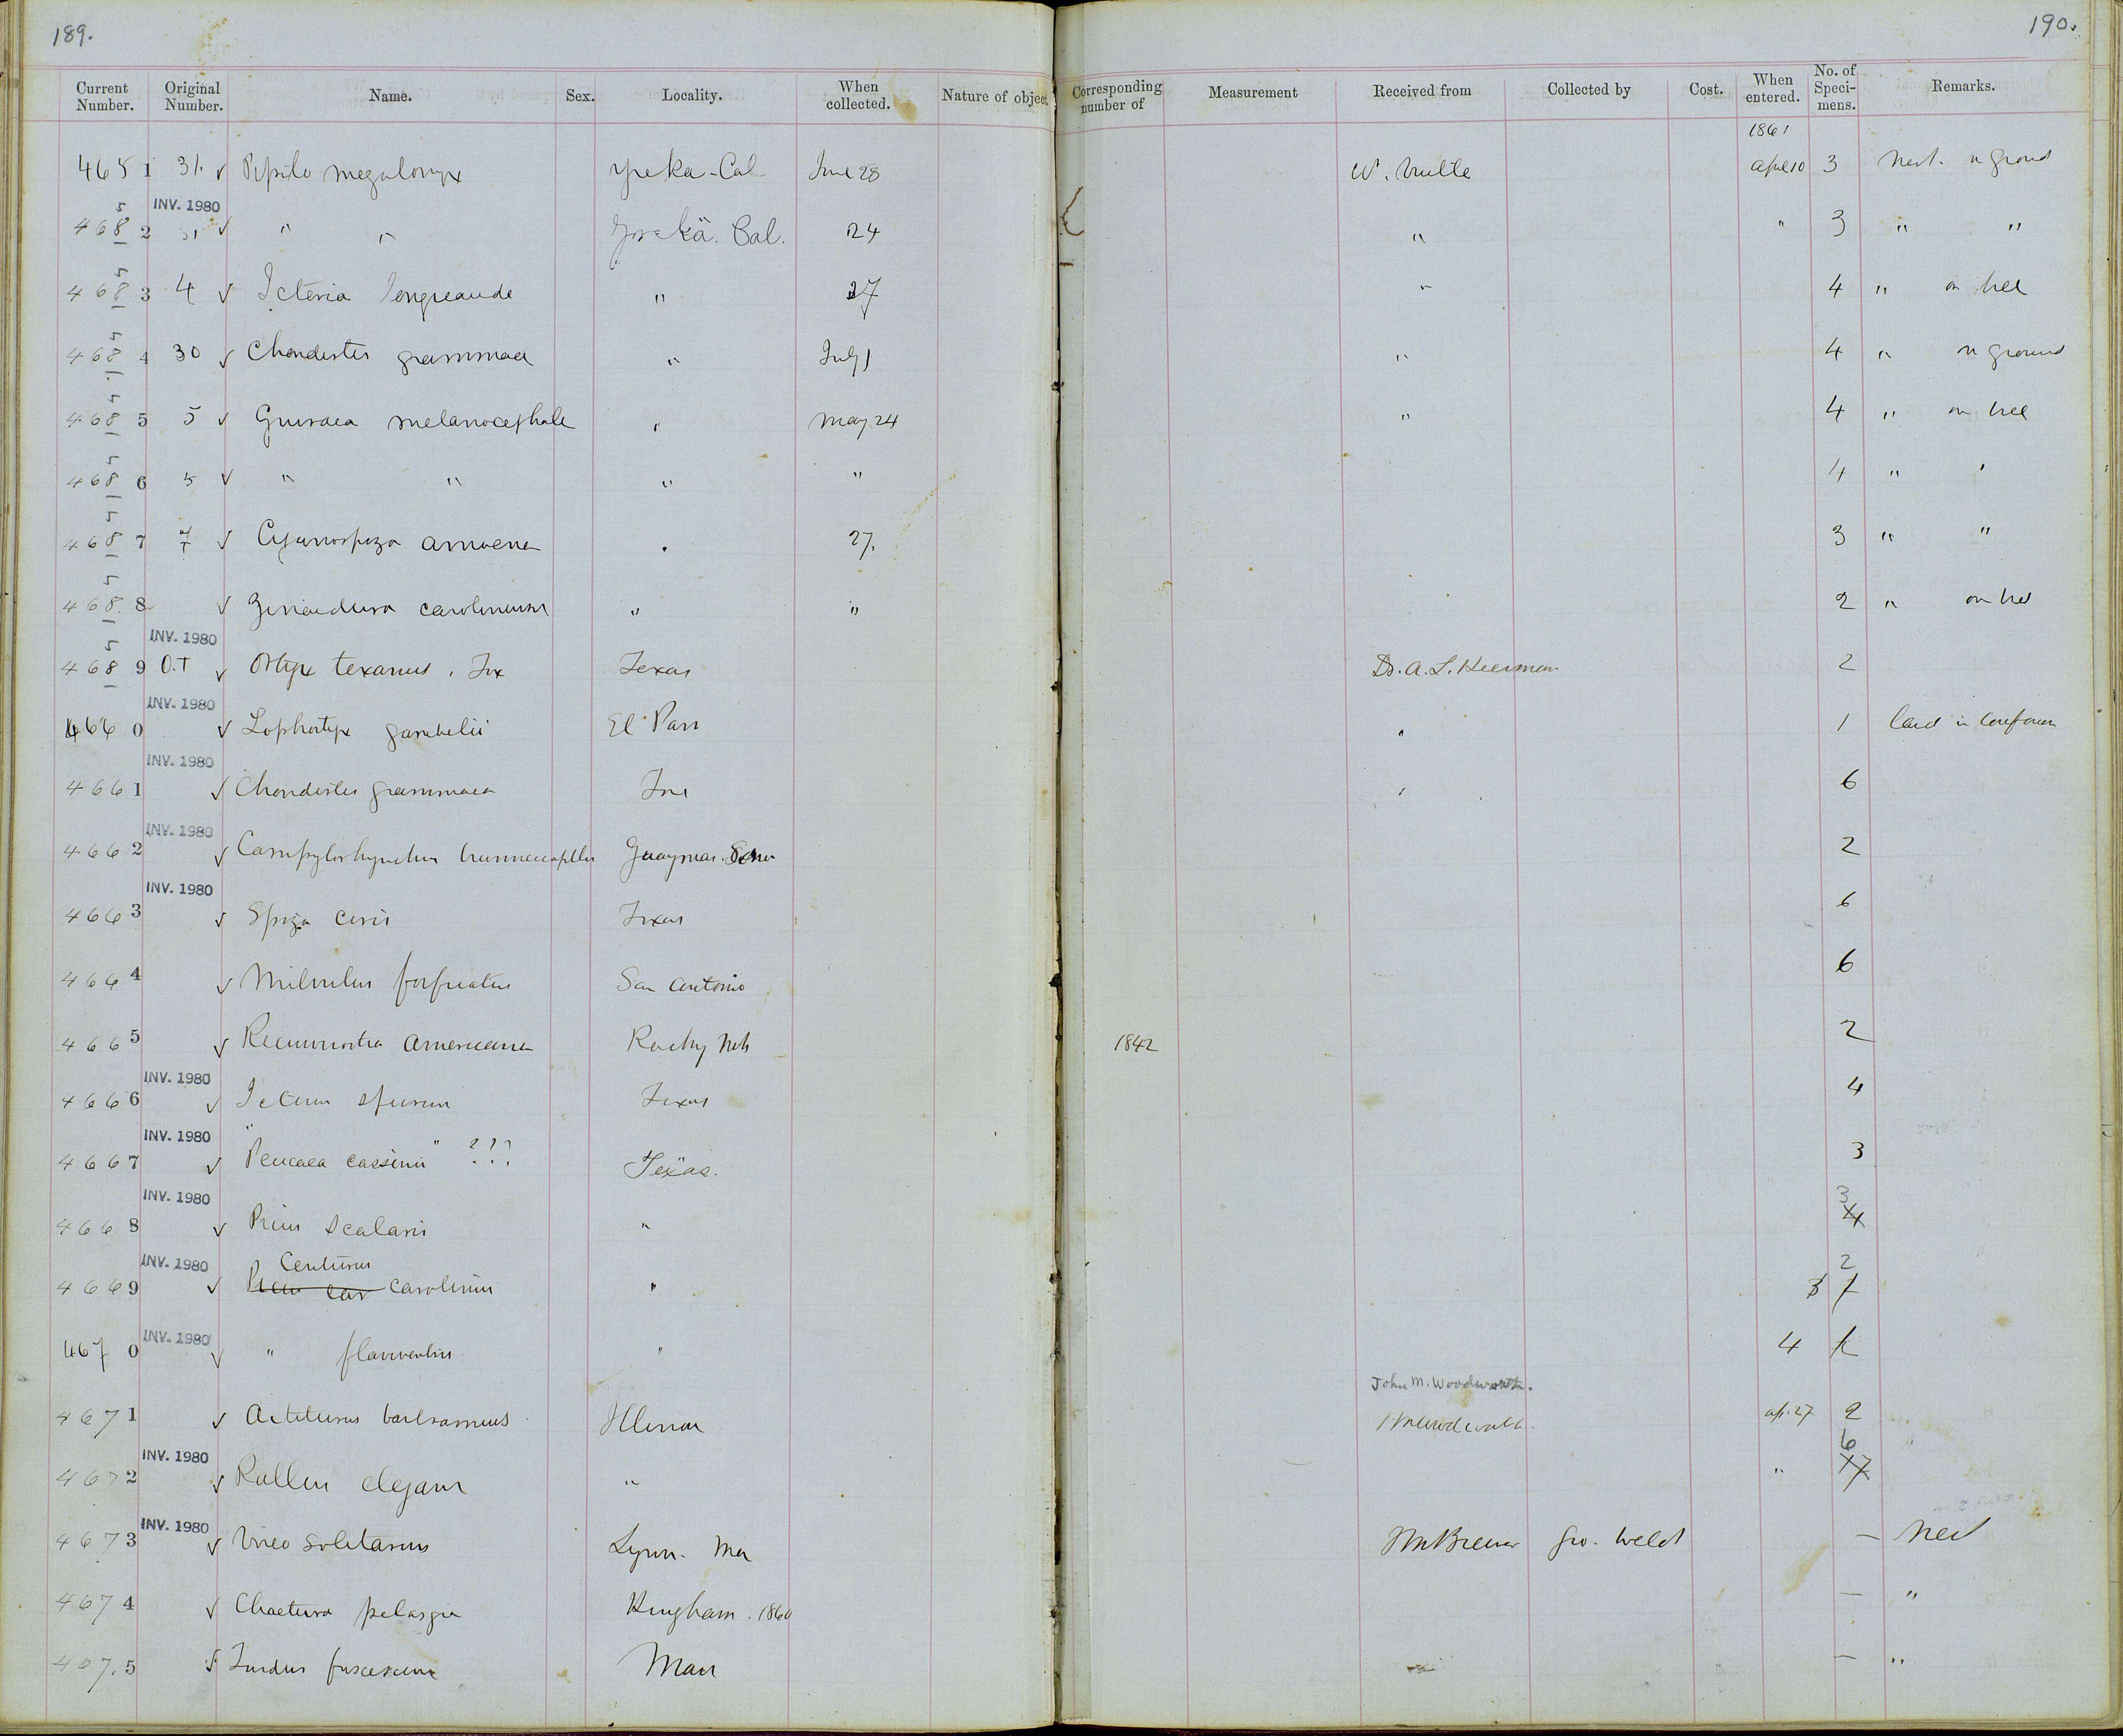 189. 190.
Current Number. Original Number. Name. Sex. Locality. When collected. Nature of object Corresponding number of Measurement Received from Collected by Cost. When entered. No. of Specimens. Remarks.
1861
4651 31. ✓ Pipilo megalonyx Yreka-Cal June 28 W. April 10 3 Nest. on ground
INV. 1980
4682 5 31 ✓ " " Yreka. Cal. 24 " " 3 " "
4683 5 4 ✓ Icteria longicauda " 27 " 4 " on tree
4684 5 30 ✓ Chondestes grammaca " July 1 " 4 " on ground
4685 5 5 ✓ Guiraca melanocephala " May 24 " 4 " on tree
4686 5 5 ✓ " " " " 4 " '
4687 5 7 ✓ Cyanospiza amoena . 27. 3 " "
4688 5 ✓ Zenaidura carolinensis " " 2 " on tree
INV. 1980
4689 5 O.T ✓ Ortyx texanus. Tex Texas Dr. A. L. Heerman 2
INV. 1980
4660 ✓ Lophortyx gambelii El Paso " 1 laid in
INV. 1980
4661 ✓ Chondestes grammaca " 6
INV. 1980
4662 ✓ Campylorhynchus brunneicapillus Guaymas. Sono 2
INV. 1980
4663 ✓ Spiza ciris Texas 6
4664 ✓ Milvulus forficatus San Antonio 6
4665 ✓ Recurvirostra Americana Rocky Mts 1842 2
INV. 1980
4666 ✓ Icterus spurius Texas 4
INV. 1980
4667 ✓ "Peucaea cassinii" ??? Texas. 3
INV. 1980
4668 ✓ Picus scalaris " 3 4
INV. 1980 Centurus 2
4669 ✓ Picus car carolinus " 3
INV. 1980
4670 ✓ " flaviventris " 4
John M. Woodworth.
4671 ✓ Actiturus bartramius Illinois ap. 27 2
INV. 1980 6
4672 ✓ Rallus elegans " " 7
INV. 1980
4673 ✓ Vireo solitarius Lynn. Mas Brewer Geo. Welch — Nest
4674 ✓ Chaetura pelasgia Hingham. 1860 — "
4675 ✓ Turdus fuscescens Mass — "